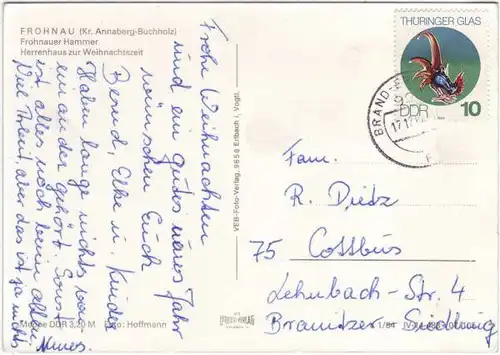 FROHNAU (Kr. Annaberg-Buchholz)
Frohnauer Hammer
Herrenhaus zur Weihnachtszeit
Frohe Weihnachten
und ein gutes neues Jahr
wünschen Euch
Bernd, Elke u. Kinder
Haben lange nichts von-
einander gehört. Sonst
ist alles noch beim alten.
Viel Arbeit, aber das ist ja nichts
Neues.
VEB-Foto-Verlag, 9659 Erlbach i. Vogtl.
THÜRINGER GLAS
DDR 10
BRAND-
Fam.
R. Dietz
75 Cottbus
Lehnbach-Str. 4
Branitzer Siedlung
DDR 3,20 M Foto: Hoffmann
1/84